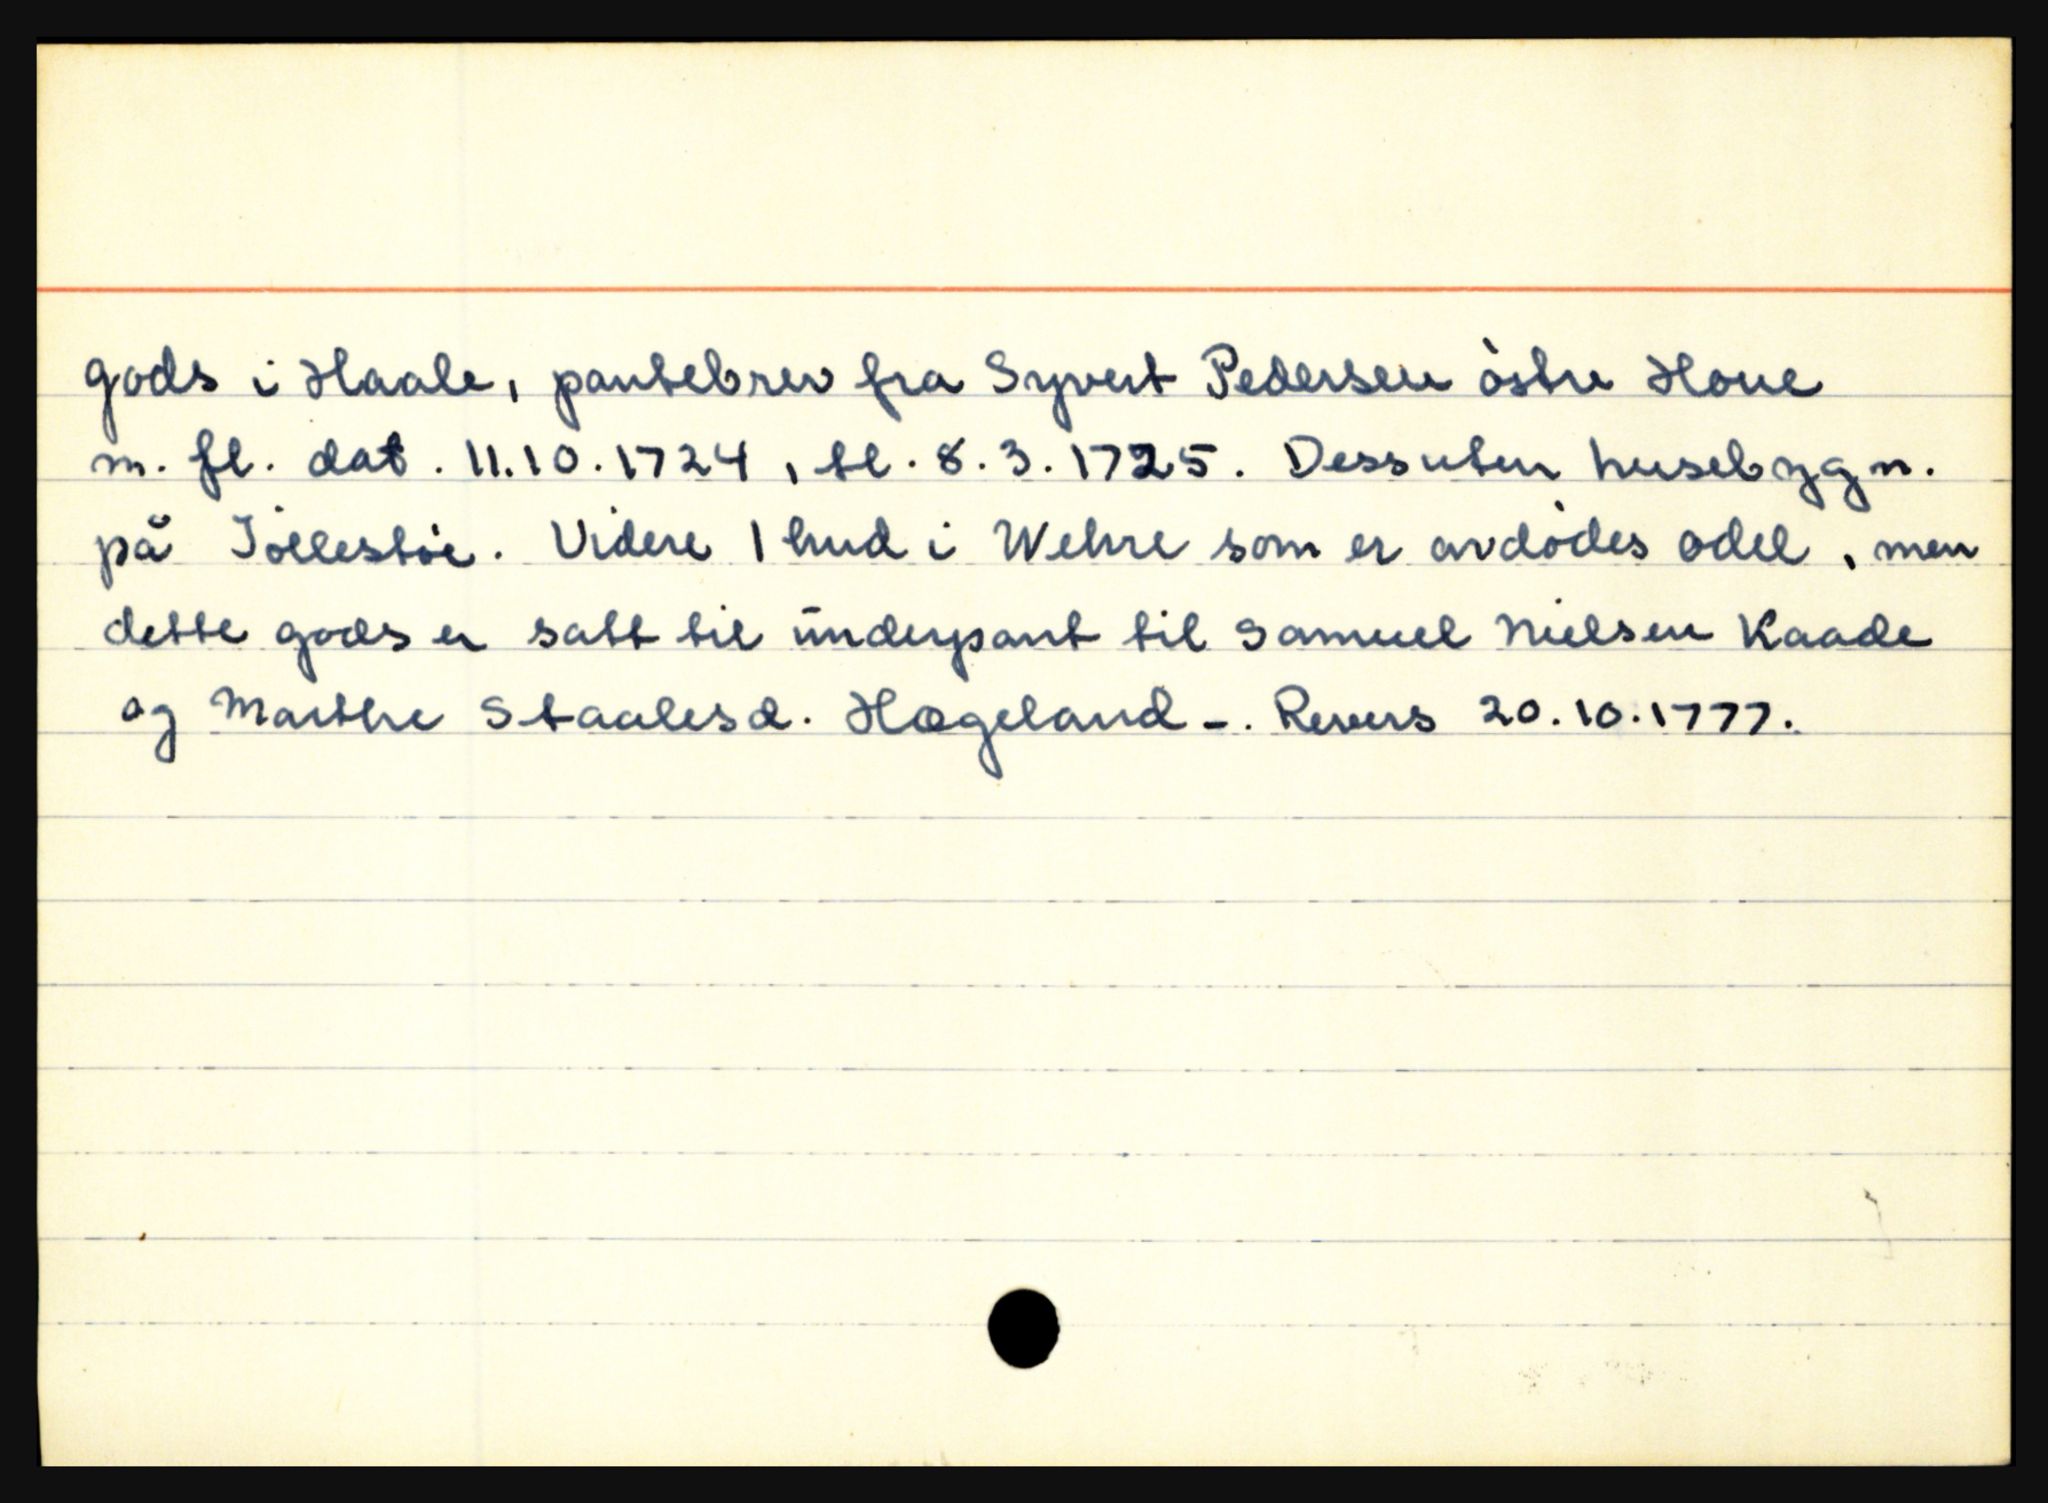 gods i Haale, pantebrev fra Syvert Pedersen östre Houe
m. fl. dat. 11.10.1724, tl. 8.3.1725. Dessuten husebygn.
på Jöllestöe. Videre 1 hud i Wehre som er avdödes odel, men
dette gods er satt til underpant til Samuel Nielsen Kaade
og Marthe Staalesd. Hægeland -. Revers 20.10.1777.